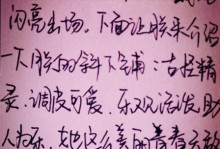 闪亮出场。下面让我来介绍
一下我的斜下铺：古怪精
灵、调皮可爱、乐观活泼、助
人为乐，她这么美丽青春